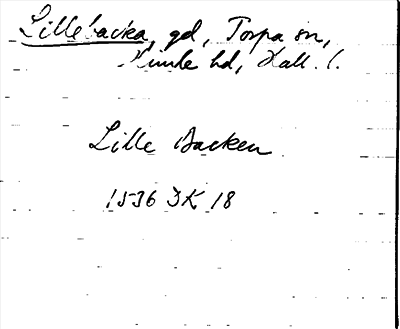 Lillebacka, gd, Torpa sn,
Himle hd, Hall. l.
Lille Backen
1536 JK 18